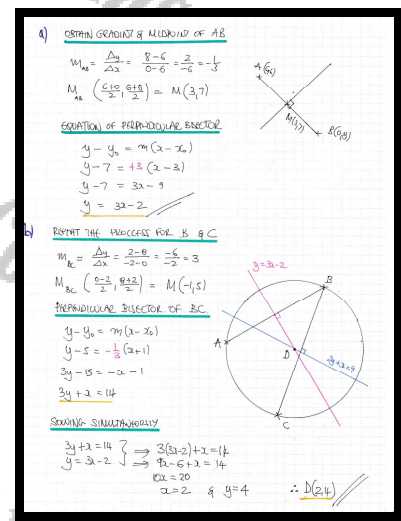 a) OBTAIN GRADIENT & MIDPOINT OF AB
m_AB = Δy/Δx = 8-6/0-6 = 2/-6 = -1/3
M_AB (6+0/2, 6+8/2) = M(3,7)
A(6,6)
M(3,7)
B(0,8)
EQUATION OF PERPENDICULAR BISECTOR
y - y₀ = m(x - x₀)
y - 7 = +3(x - 3)
y - 7 = 3x - 9
y = 3x - 2
b) REPEAT THE PROCCESS FOR B & C
m_BC = Δy/Δx = 2-8/-2-0 = -6/-2 = 3
M_BC (0-2/2, 8+2/2) = M(-1,5)
PERPENDICULAR BISECTOR OF BC.
y - y₀ = m(x - x₀)
y - 5 = -1/3(x+1)
3y - 15 = -x - 1
3y + x = 14
y=3x-2
B
A
D
C
SOLVING SIMULTANEOUSLY
3y + x = 14
y = 3x - 2
⇒ 3(3x-2) + x = 14
⇒ 9x - 6 + x = 14
10x = 20
x = 2 & y = 4
∴ D(2,4)